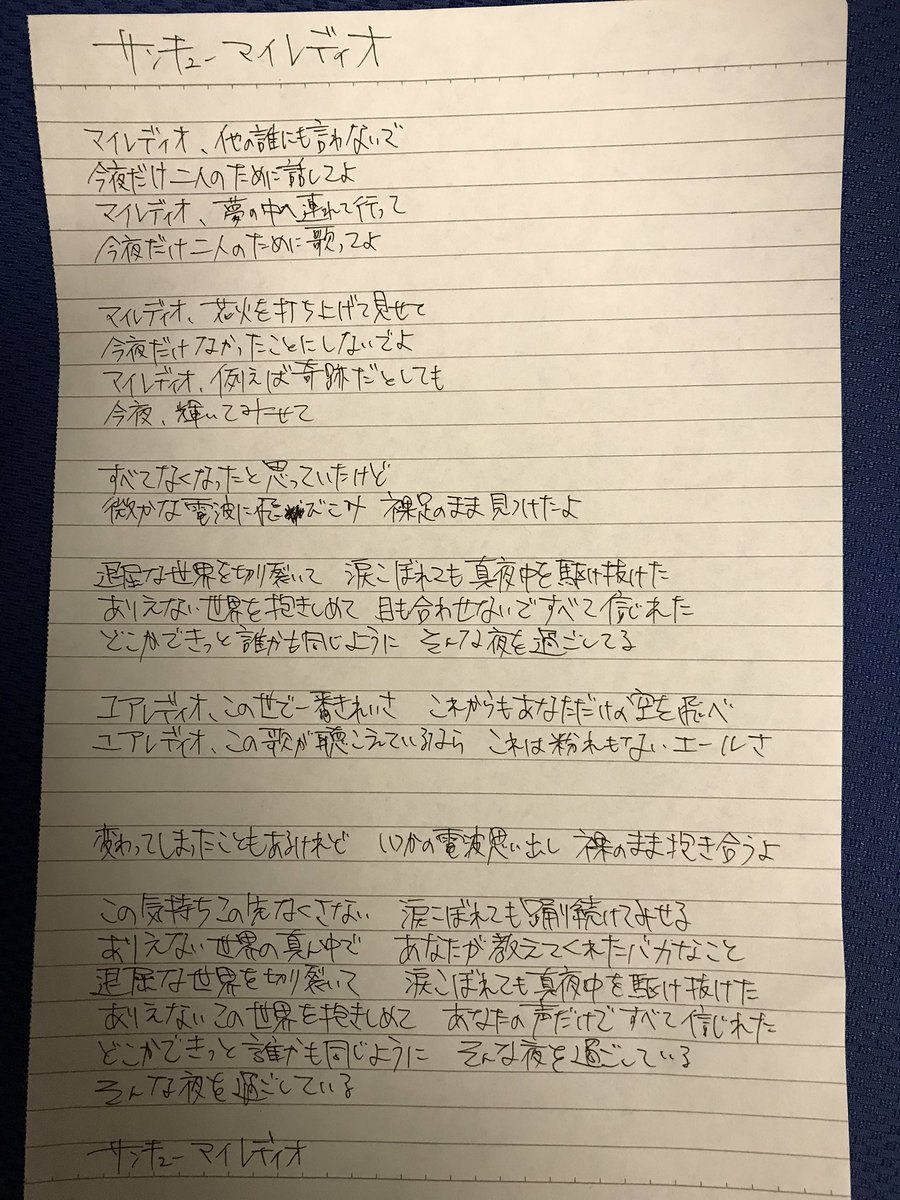 サンキューマイレディオ
マイレディオ、他の誰にも言わないで
今夜だけ二人のために話してよ
マイレディオ、夢の中へ連れて行って
今夜だけ二人のために歌ってよ
マイレディオ、花火を打ち上げて見せて
今夜だけなかったことにしないでよ
マイレディオ、例えば奇跡だとしても
今夜、輝いてみせて
すべてなくなったと思っていたけど
微かな電波に飛びこみ 裸足のまま見つけたよ
退屈な世界を切り裂いて 涙こぼれても真夜中を駆け抜けた
ありえない世界を抱きしめて 目も合わせないですべて信じれた
どこかできっと誰かも同じように そんな夜を過ごしてる
ユアレディオ、この世で一番きれいさ これからもあなただけの空を飛べ
ユアレディオ、この歌が聴こえているなら これは紛れもないエールさ
変わってしまったこともあるけれど いつかの電波思い出し 裸のまま抱き合うよ
この気持ちこの先なくさない 涙こぼれても踊り続けてみせる
ありえない世界の真ん中で あなたが教えてくれたバカなこと
退屈な世界を切り裂いて 涙こぼれても真夜中を駆け抜けた
ありえないこの世界を抱きしめて あなたの声だけですべて信じれた
どこかできっと誰かも同じように そんな夜を過ごしている
そんな夜を過ごしている
サンキューマイレディオ